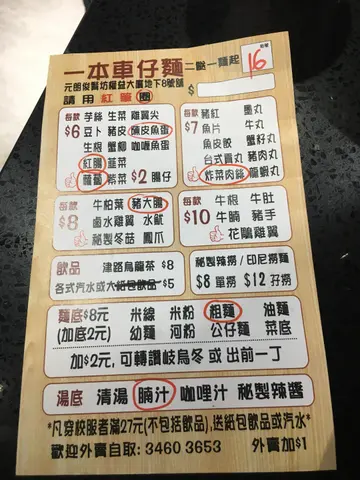 一本車仔麵 二餸一麵起
16
元朗俊賢坊權益大厦地下8號舖
請用紅筆圈 $
每款 $6
芋絲 生菜 雞翼尖
豆卜 豬皮 魚皮魚蛋
生根 蟹柳 咖喱魚蛋
紅腸 韮菜
蘿蔔 紫菜 $2 腸仔
每款 $7
豬紅 墨丸
魚片 牛丸
魚皮餃 蟹籽丸
台式貢丸 豬肉丸
炸菜肉絲 龍蝦丸
每款 $8
牛柏葉 豬大腸
鹵水雞翼 水魷
秘製冬菇 鳳爪
每款 $10
牛根 牛肚
牛腩 豬手
花雕雞翼
飲品 津路烏龍茶 $8
各式汽水或大紙包飲品 $5
秘製辣撈/印尼撈麵
$8 單撈 $12 孖撈
麵底$8元 米線 米粉 粗麵 油麵
(加底2元) 幼麵 河粉 公仔麵 菜底
加$2元, 可轉讚岐烏冬 或 出前一丁
湯底 清湯 腩汁 咖哩汁 秘製辣醬
*凡穿校服者滿27元(不包括飲品),送紙包飲品或汽水*
歡迎外賣自取: 3460 3653 外賣加$1